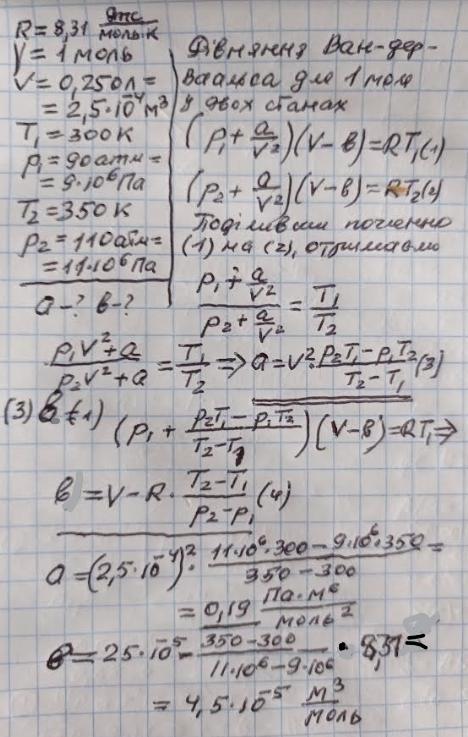 R = 8,31 Дж/моль·К
ν = 1 моль
V = 0,250 л =
= 2,5·10⁻⁴ м³
T₁ = 300 К
p₁ = 90 атм =
= 9·10⁶ Па
T₂ = 350 К
p₂ = 110 атм =
= 11·10⁶ Па
a - ? в - ?
Рівняння Ван-дер-
Ваальса для 1 моля
у двох станах
(p₁ + a/V²)(V - в) = RT₁ (1)
(p₂ + a/V²)(V - в) = RT₂ (2)
Поділивши почленно
(1) на (2), отримаємо
(p₁ + a/V²)/(p₂ + a/V²) = T₁/T₂
(p₁V² + a)/(p₂V² + a) = T₁/T₂ => a = V² · (p₂T₁ - p₁T₂)/(T₂ - T₁) (3)
(3) в (1) (p₁ + (p₂T₁ - p₁T₂)/(T₂ - T₁))(V - в) = RT₁ =>
в = V - R · (T₂ - T₁)/(p₂ - p₁) (4)
a = (2,5·10⁻⁴)² · (11·10⁶·300 - 9·10⁶·350)/(350 - 300) =
= 0,19 Па·м⁶/моль²
в = 25·10⁻⁵ - (350 - 300)/(11·10⁶ - 9·10⁶) · 8,31 =
= 4,5·10⁻⁵ м³/моль